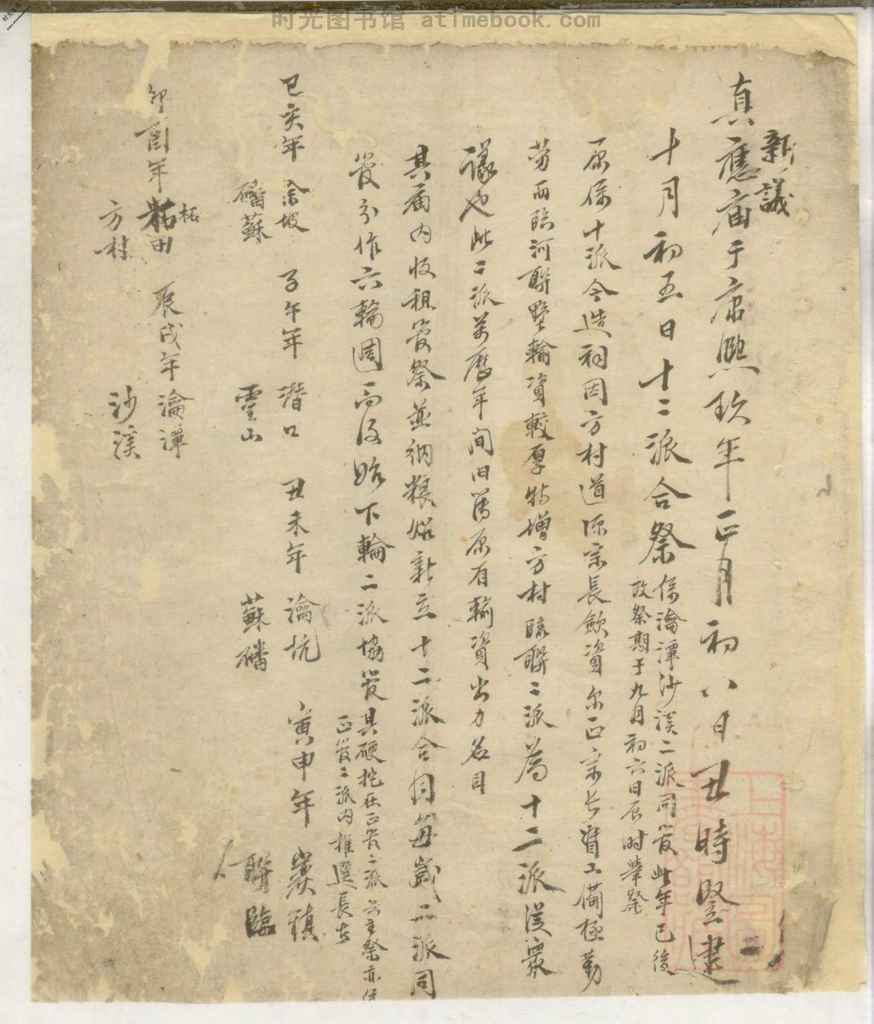 时光图书馆 atimebook.com
新議
真應庙于康熙玖年正月初八日丑時竪建
十月初五日十二派合祭
係淪潭沙溪二派同管此年已後
改祭期于九月初六日辰時举祭
原係十派今造祠因方村道源宗長飲資尔正宗长督工備極勤
劳而臨河聯墅輸資較厚特增方村臨聯二派為十二派從衆
議也此二派萬曆年間旧舊原有輸資出力名目
其庙内收租管祭並納粮炤新立十二派合同每歲二派同
管分作六輪週而復始下輪二派協管
其硬拕在正管二派主祭亦
正管二派内推選長者
巳亥年 金坡
磻蘇
子午年 潜口
靈山
丑未年 瀹坑
蘇磻
寅申年 巖鎮
聯臨
卯酉年 柘田
柘
方村
辰戌年 淪潭
沙溪